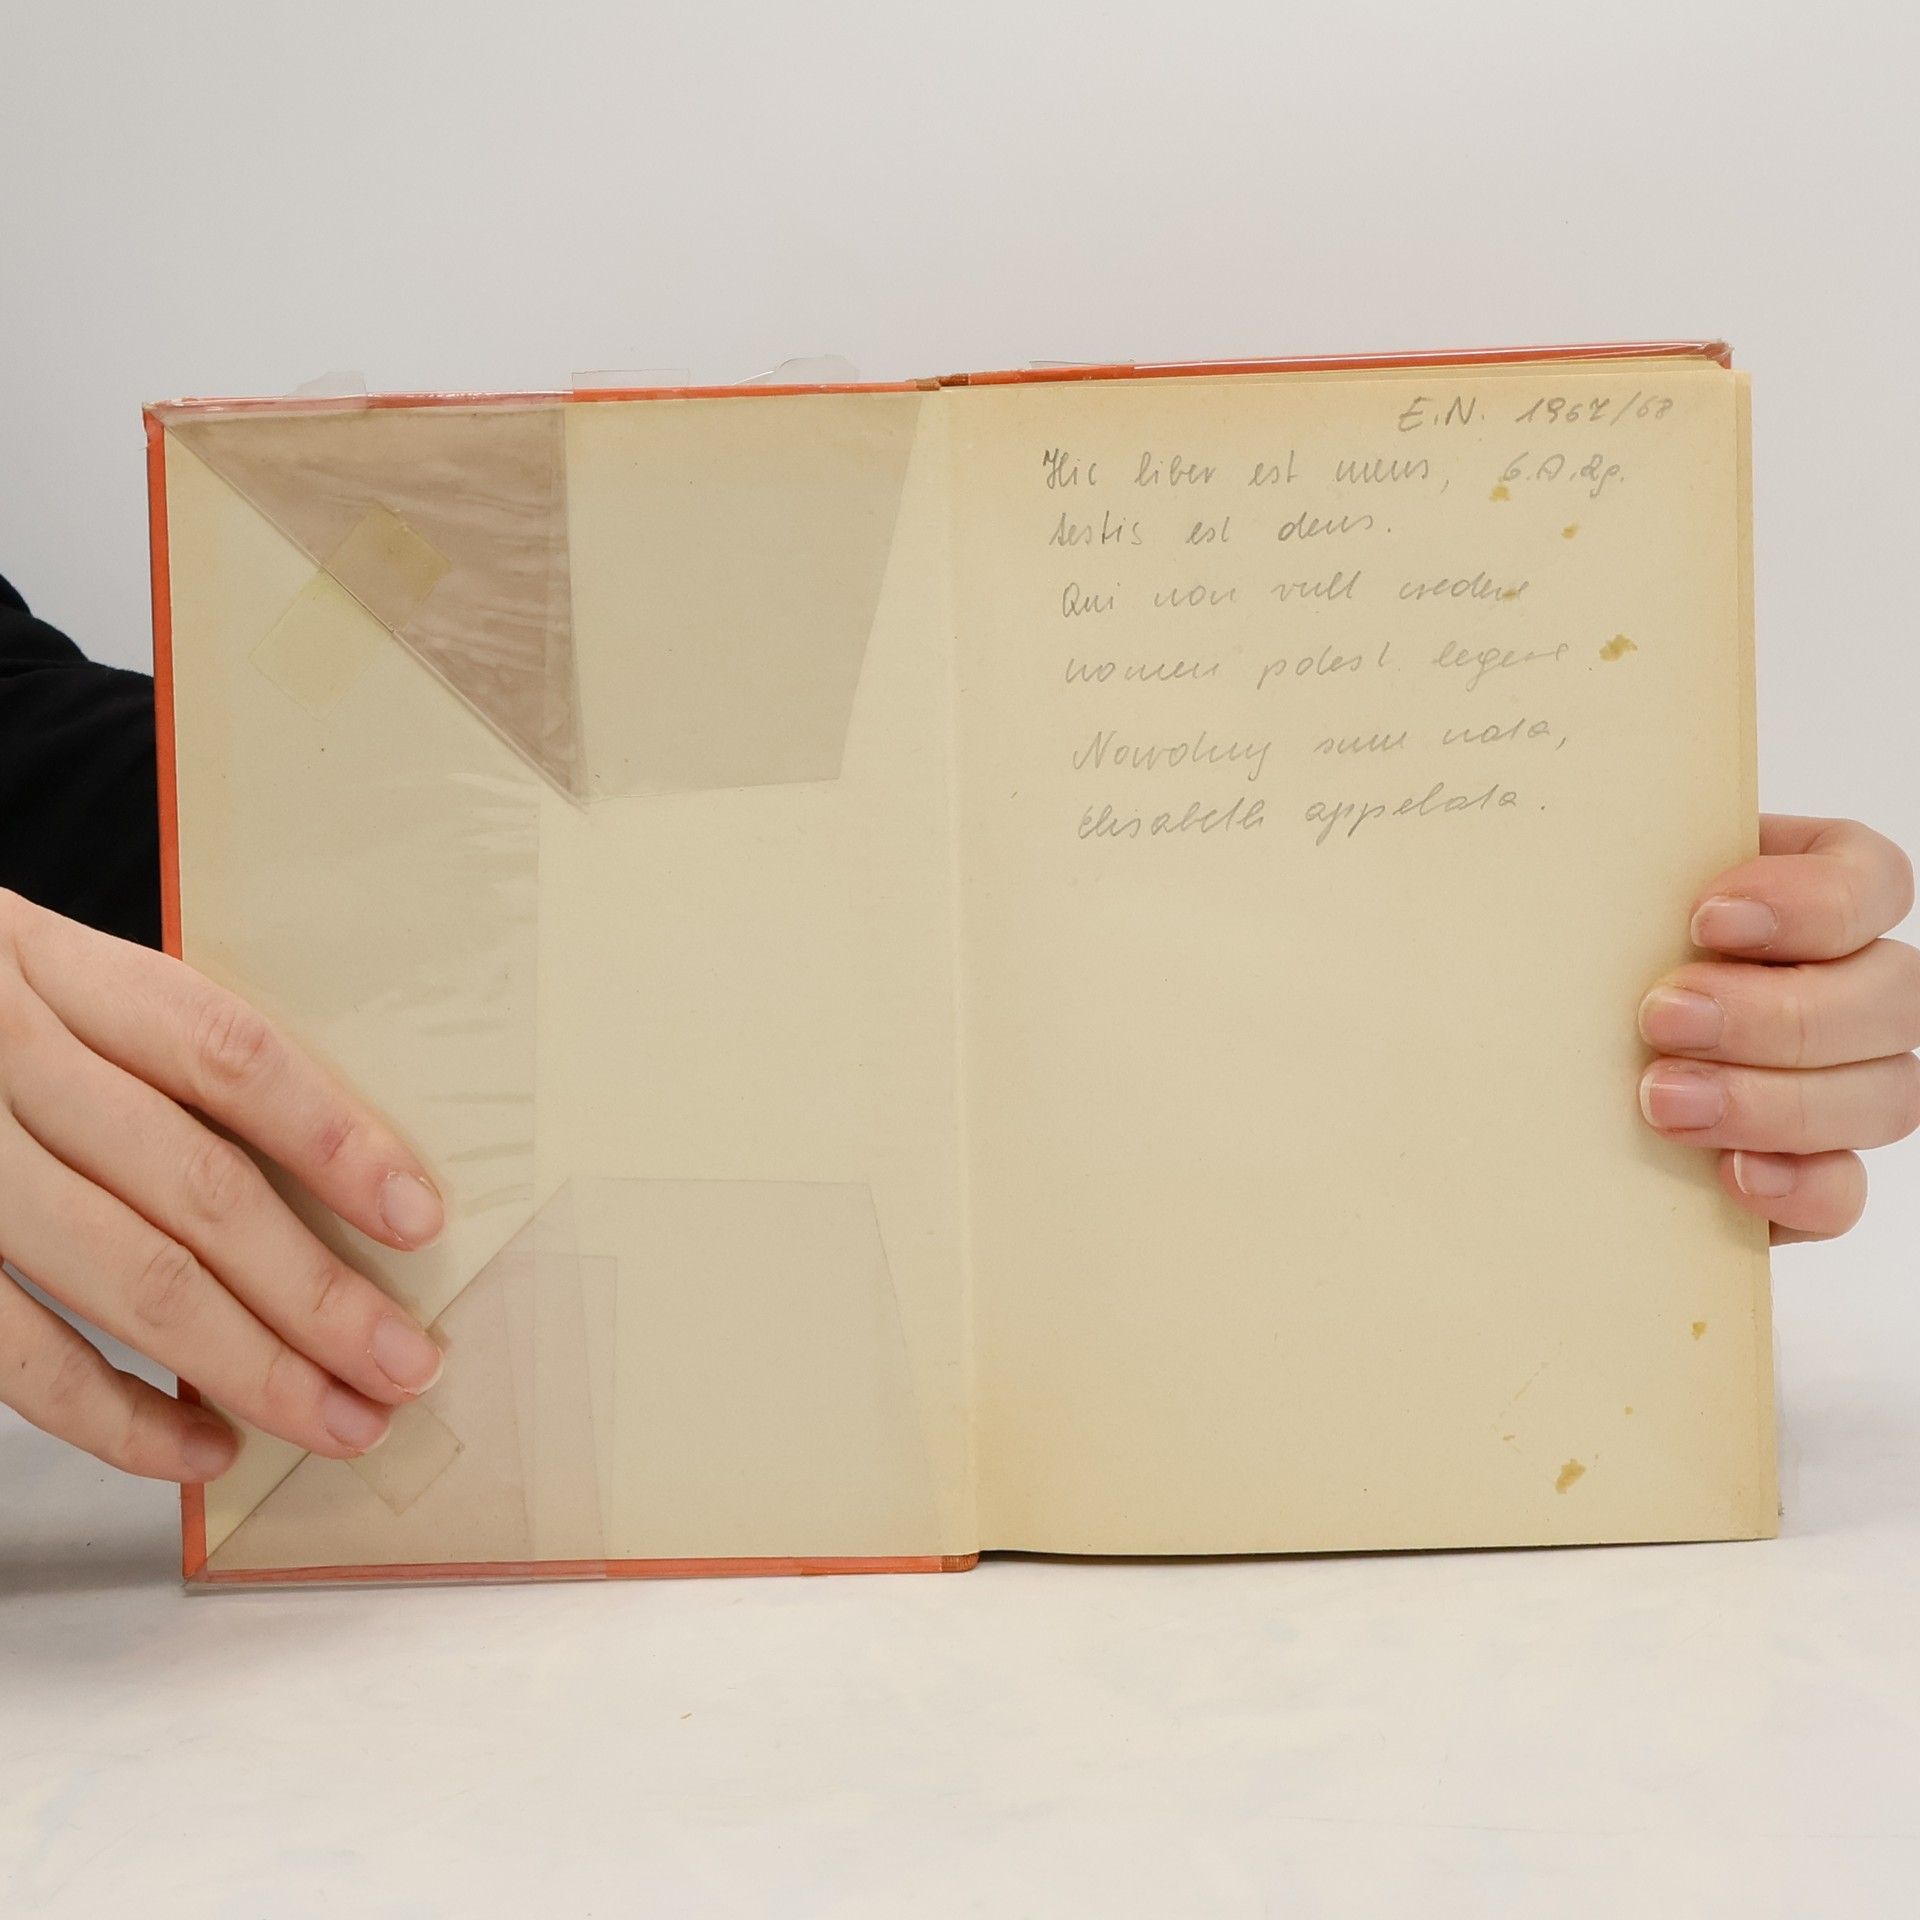 E.N. 1967/68
Hic liber est meus, 6.A.Rg.
testis est deus.
Qui non vult credere
nomen potest legere.
Nowotny sum nata,
Elisabeth appelata.